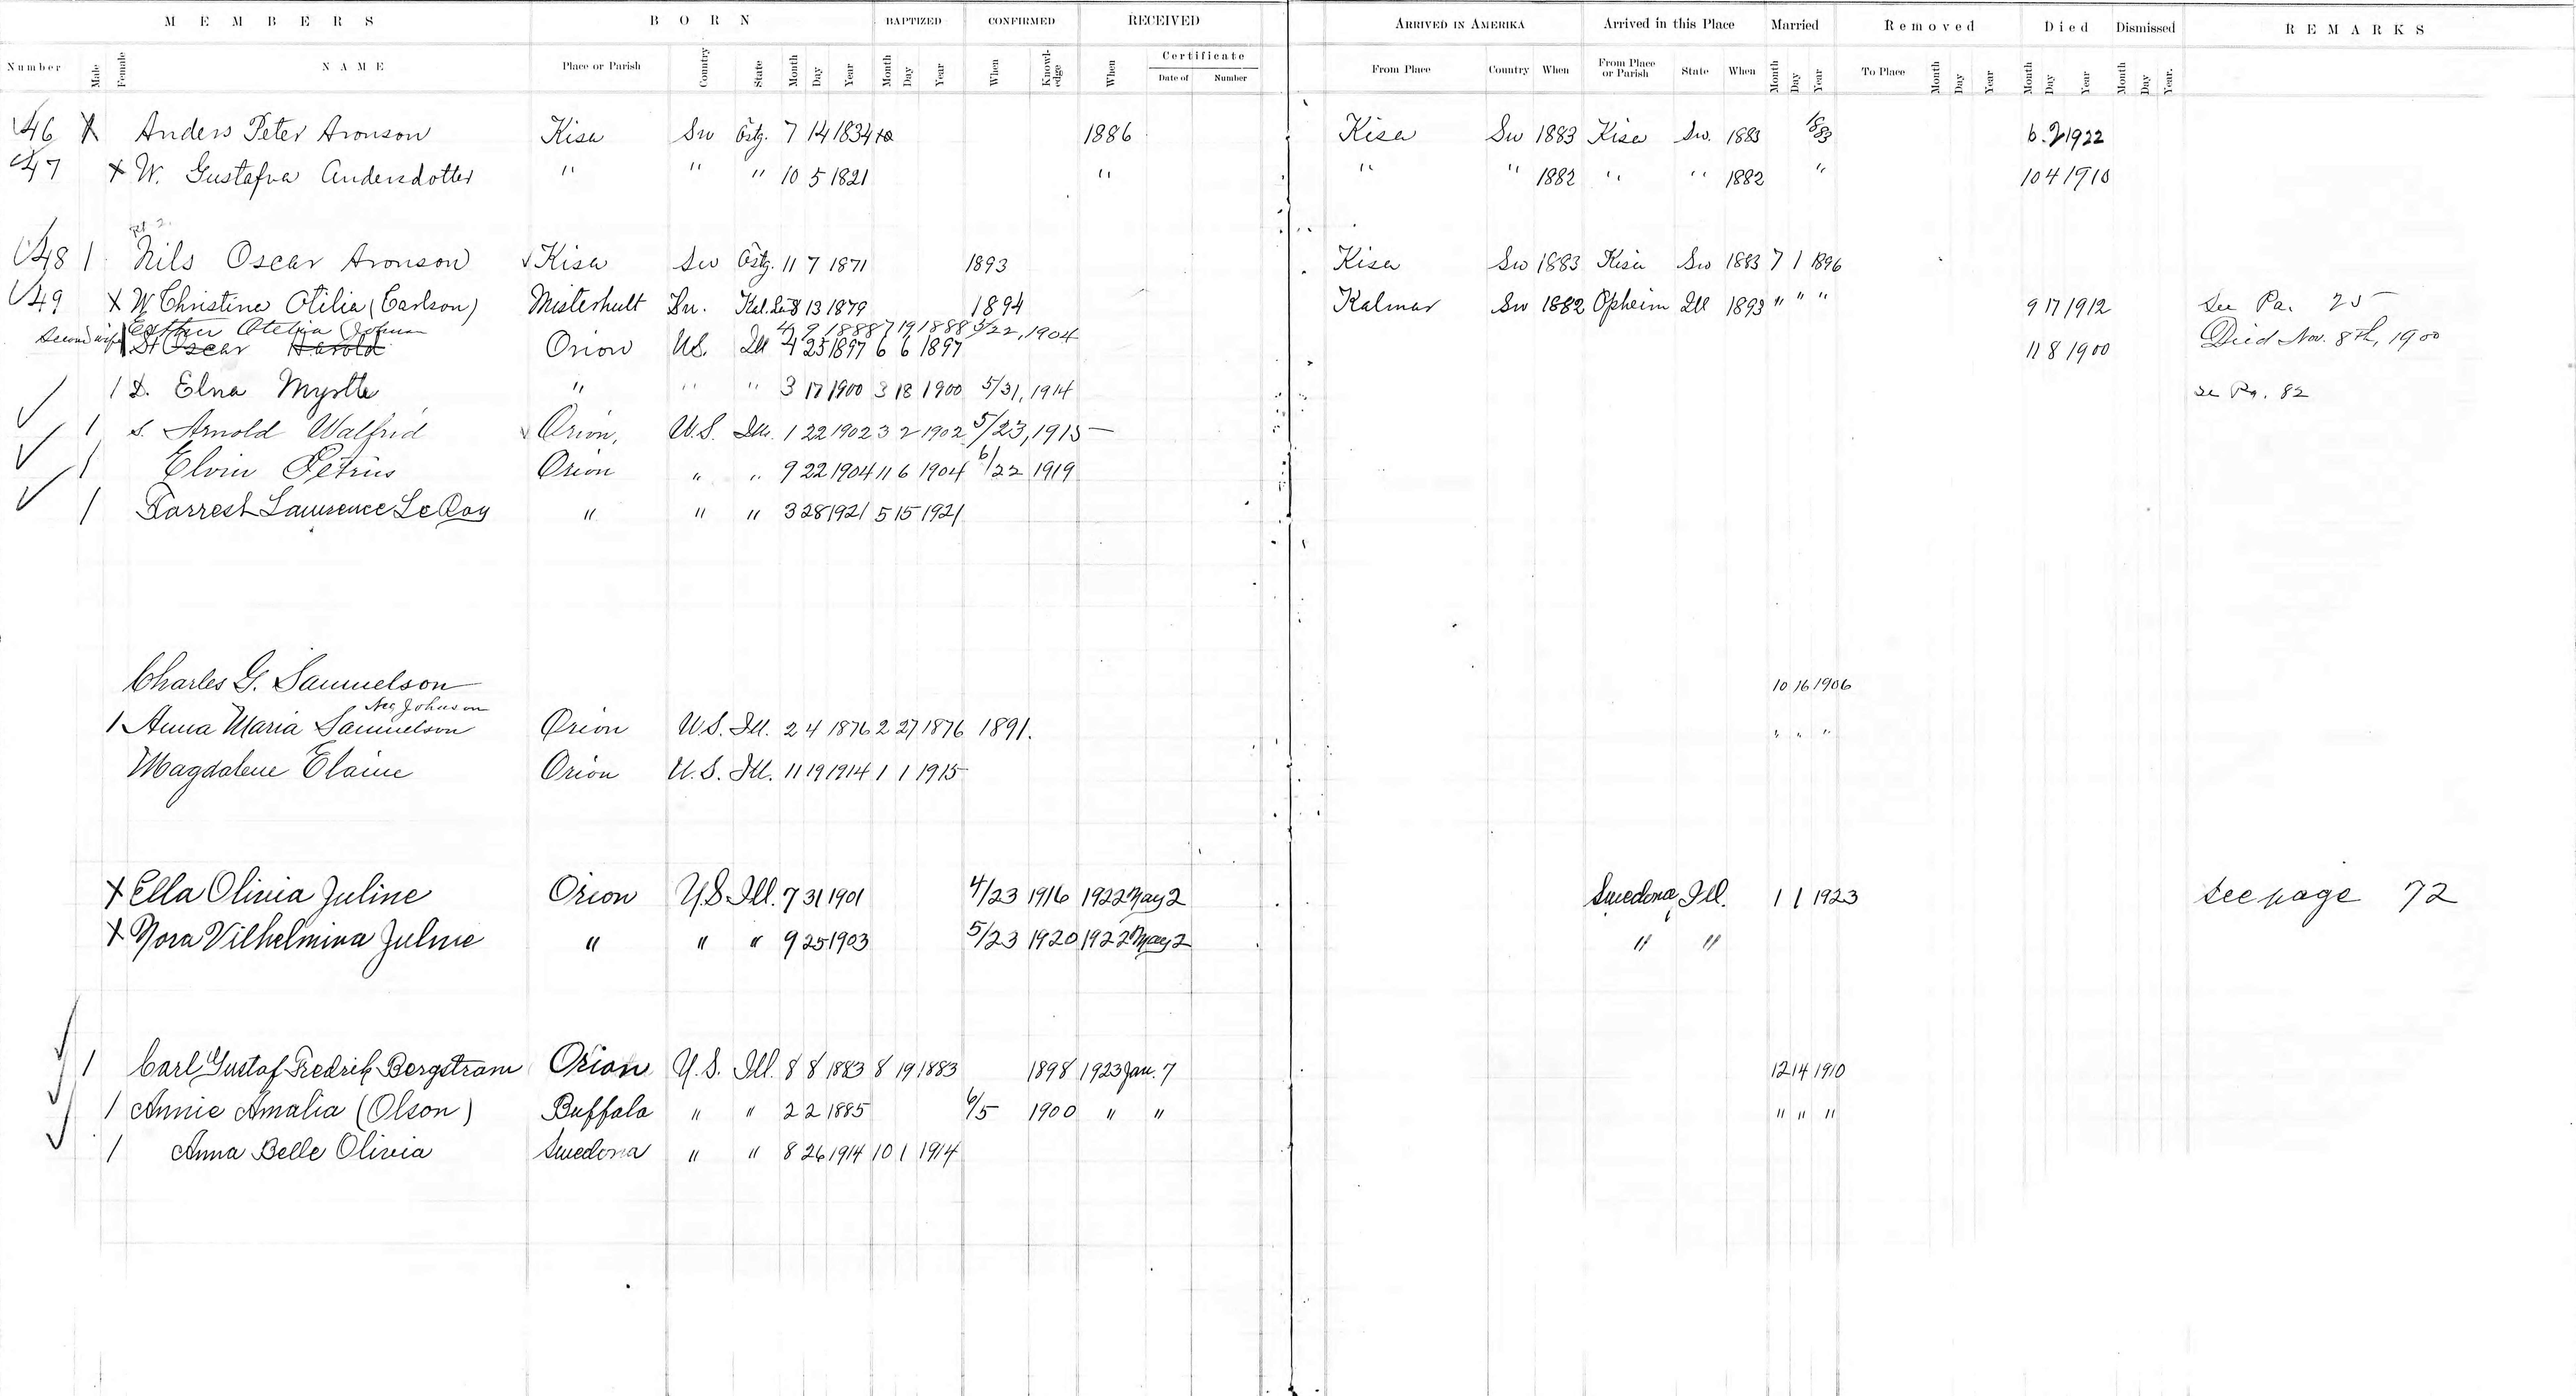 MEMBERS BORN BAPTIZED CONFIRMED RECEIVED ARRIVED IN AMERIKA Arrived in this Place Married Removed Died Dismissed REMARKS
Number Male Female NAME Place or Parish Country State Month Day Year Month Day Year When Knowl-edge When Certificate Date of Number From Place Country When From Place or Parish State When Month Day Year To Place Month Day Year Month Day Year Month Day Year.
46 X Anders Peter Aronson Kisa Sw Östg. 7 14 1834 1886 Kisa Sw 1883 Kisa Sw. 1883 1883 6 2 1922
47 X W. Gustafva Andersdotter " " " 10 5 1821 " " " 1882 " " 1882 " 10 4 1910
48 1 Nils Oscar Aronson Kisa Sw Östg. 11 7 1871 1893 Kisa Sw 1883 Kisa Sw 1883 7 1 1896
49 X W Christine Otilia (Carlson) Misterhult Sw. Kal. Län 8 13 1879 1894 Kalmar Sw 1882 Opheim Ill 1893 " " " 9 17 1912 See Pa. 25
Second wife Esther Otelia Johnson 4 9 1888 7 19 1888 5/22, 1904
S. Oscar Harold Orion US. Ill 4 25 1897 6 6 1897 11 8 1900 Died Nov. 8th, 1900
1 D. Elna Myrtle " " " 3 17 1900 3 18 1900 5/31, 1914 se Pa. 82
1 S. Arnold Walfrid Orion, U.S. Ill. 1 22 1902 3 2 1902 5/23, 1915
1 Elvin Petrus Orion " " 9 22 1904 11 6 1904 6/22 1919
1 Forrest Lawrence LeRoy " " " 3 28 1921 5 15 1921
Charles G. Samuelson 10 16 1906
Neg Johnson
1 Anna Maria Samuelson Orion U.S. Ill. 2 4 1876 2 27 1876 1891. " " "
Magdalene Elaine Orion U.S. Ill. 11 19 1914 1 1 1915
X Ella Olivia Juline Orion U.S Ill. 7 31 1901 4/23 1916 1922 May 2 Swedona, Ill. 1 1 1923 see page 72
X Nora Vilhelmina Juline " " " 9 25 1903 5/23 1920 1922 May 2 " "
1 Carl Gustaf Fredrik Bergstrom Orion U.S. Ill. 8 8 1883 8 19 1883 1898 1923 Jan. 7 12 14 1910
1 Annie Amalia (Olson) Buffalo " " 2 2 1885 6/5 1900 " " " " "
1 Anna Belle Olivia Swedona " " 8 26 1914 10 1 1914